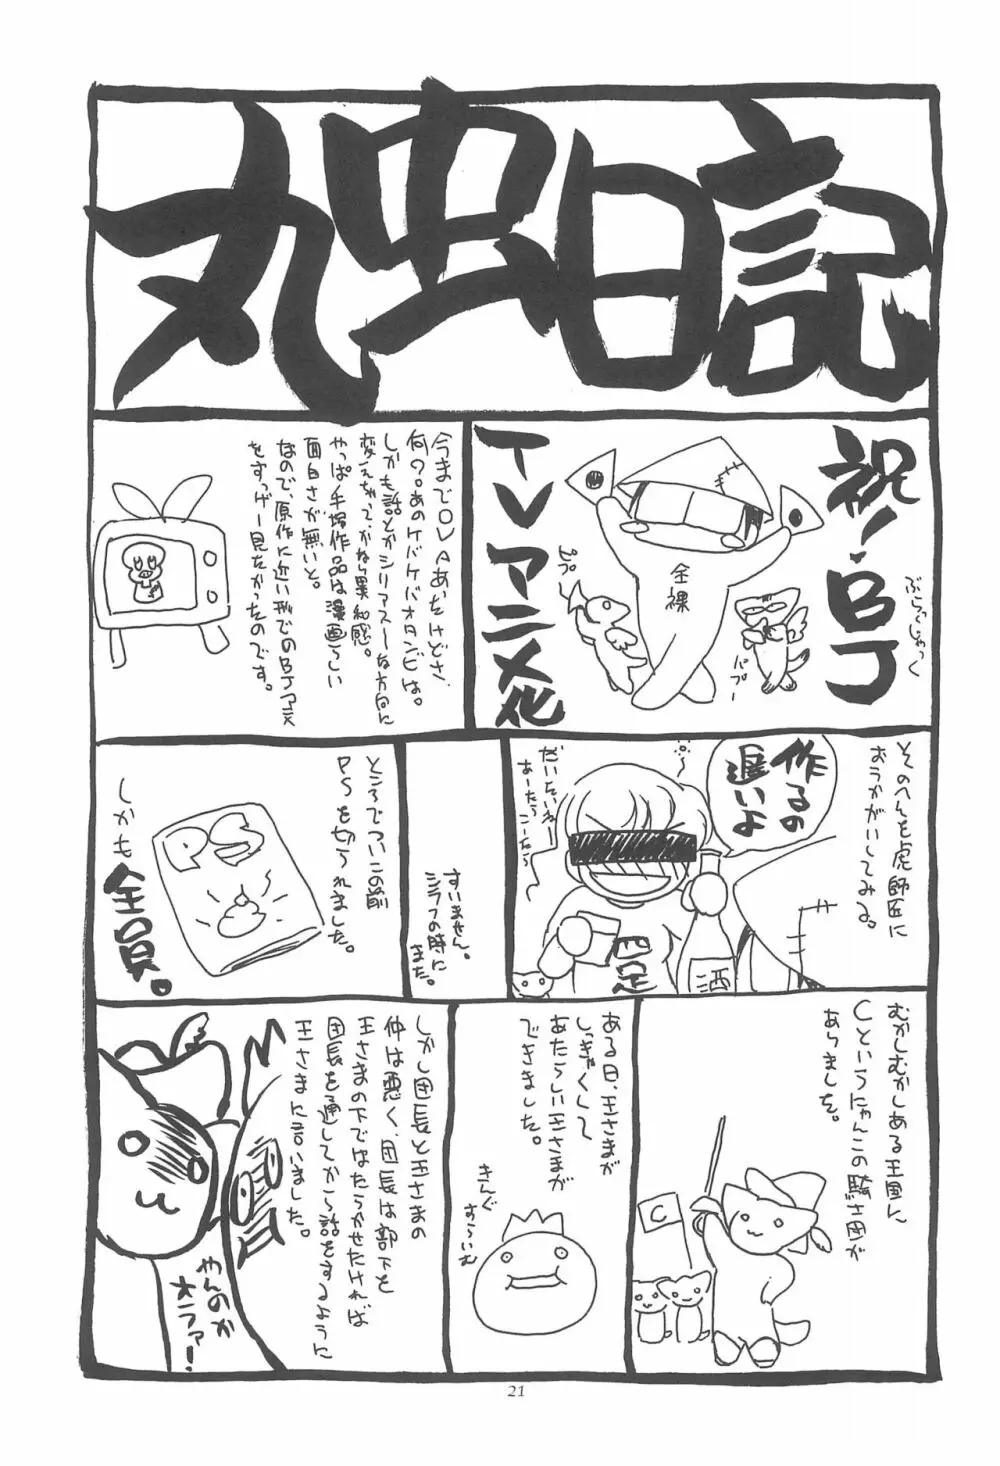 丸虫日記
祝!BJ
ぶらっくじゃっく
TVアニメ化
全裸
ピプー
パプー
今までOVAあったけどさ、
何?あのケバケバオタンビは。
しかも話とかシリアスーな方向に
変えちゃってかなり異和感。
やっぱ手塚作品は漫画らしい
面白さが無いと。
なので、原作に近い形でのBJアニメ
をすっげー見たかったのです。
そのへんを虎師匠に
おうかがいしてみる。
作るの
遅いよ
だいたいねー
あーたらこーたら
四足
酒
すいません。
シラフの時に
また。
ところでついこの前
PSを切られました。
PS
しかも
全員。
むかしむかしある王国に
Cというにゃんこの騎士団が
ありました。
C
ある日、王さまが
しっきゃくして
あたらしい王さまが
できました。
きんぐ
すらいむ
しかし団長と王さまの
仲は悪く、団長は部下を
王さまの下ではたらかせたければ
団長を通してから話をするように
王さまに言いました。
やんのか
オラァー!
21